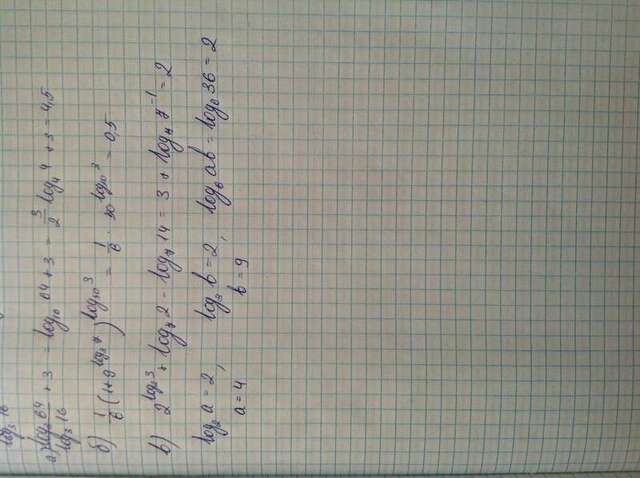 log₃ 16
а) log₃ 64 / log₃ 16 + 3 = log₁₆ 64 + 3 = 3/2 log₄ 4 + 3 = 4,5
б) 1/6 (1 + 9^log) ^log₃₀ 3 = 1/6 · 30^log₃₀ 3 = 0,5
в) 2^log₂ 3 + log₇ 2 - log₇ 14 = 3 + log₇ 7⁻¹ = 2
log₂ a = 2, log₃ b = 2, log₆ ab = log₆ 36 = 2
a = 4 b = 9